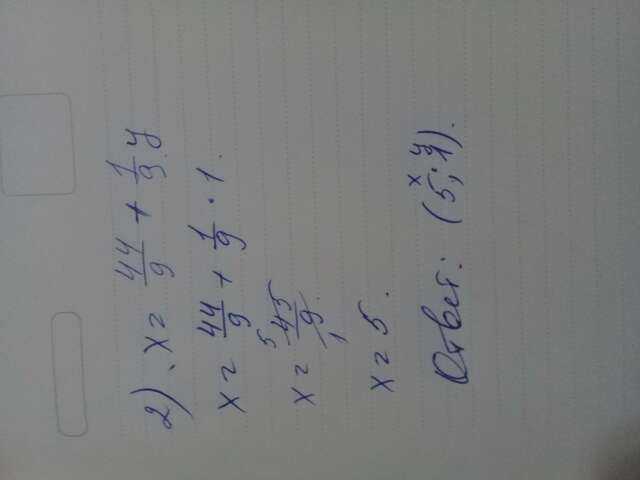 2) x = 44/9 + 1/9 y
x = 44/9 + 1/9 · 1.
x = 45/9 5 1
x = 5.
x y
Ответ: (5; 1).